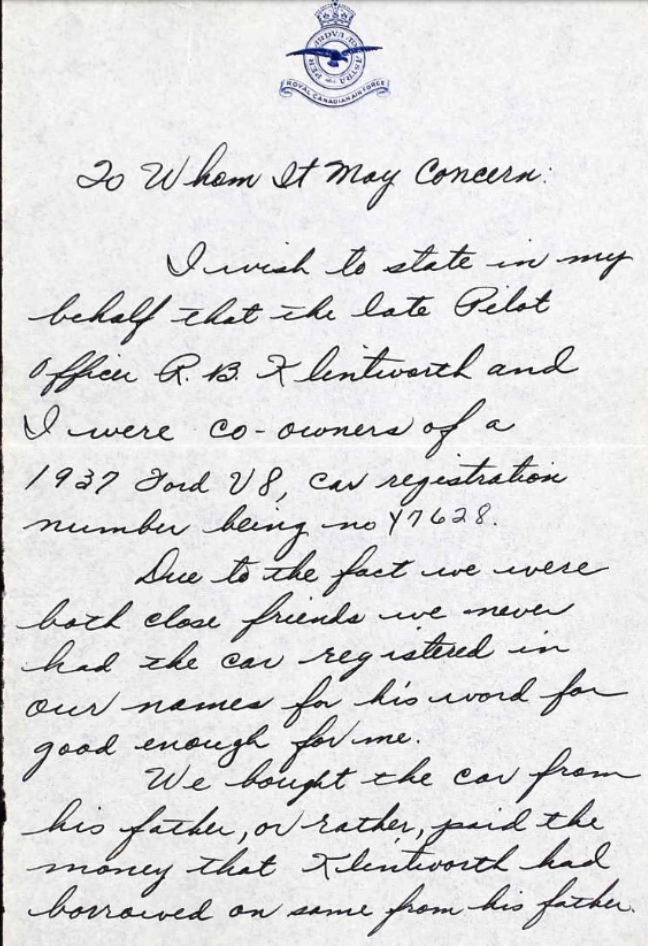 PER ARDUA AD ASTRA
ROYAL CANADIAN AIR FORCE
To Whom It May Concern:
I wish to state in my
behalf that the late Pilot
Officer R. B. Klintworth and
I were co-owners of a
1937 Ford V8, car registration
number being no Y7628.
Due to the fact we were
both close friends we never
had the car registered in
our names for his word for
good enough for me.
We bought the car from
his father, or rather, paid the
money that Klintworth had
borrowed on same from his father.